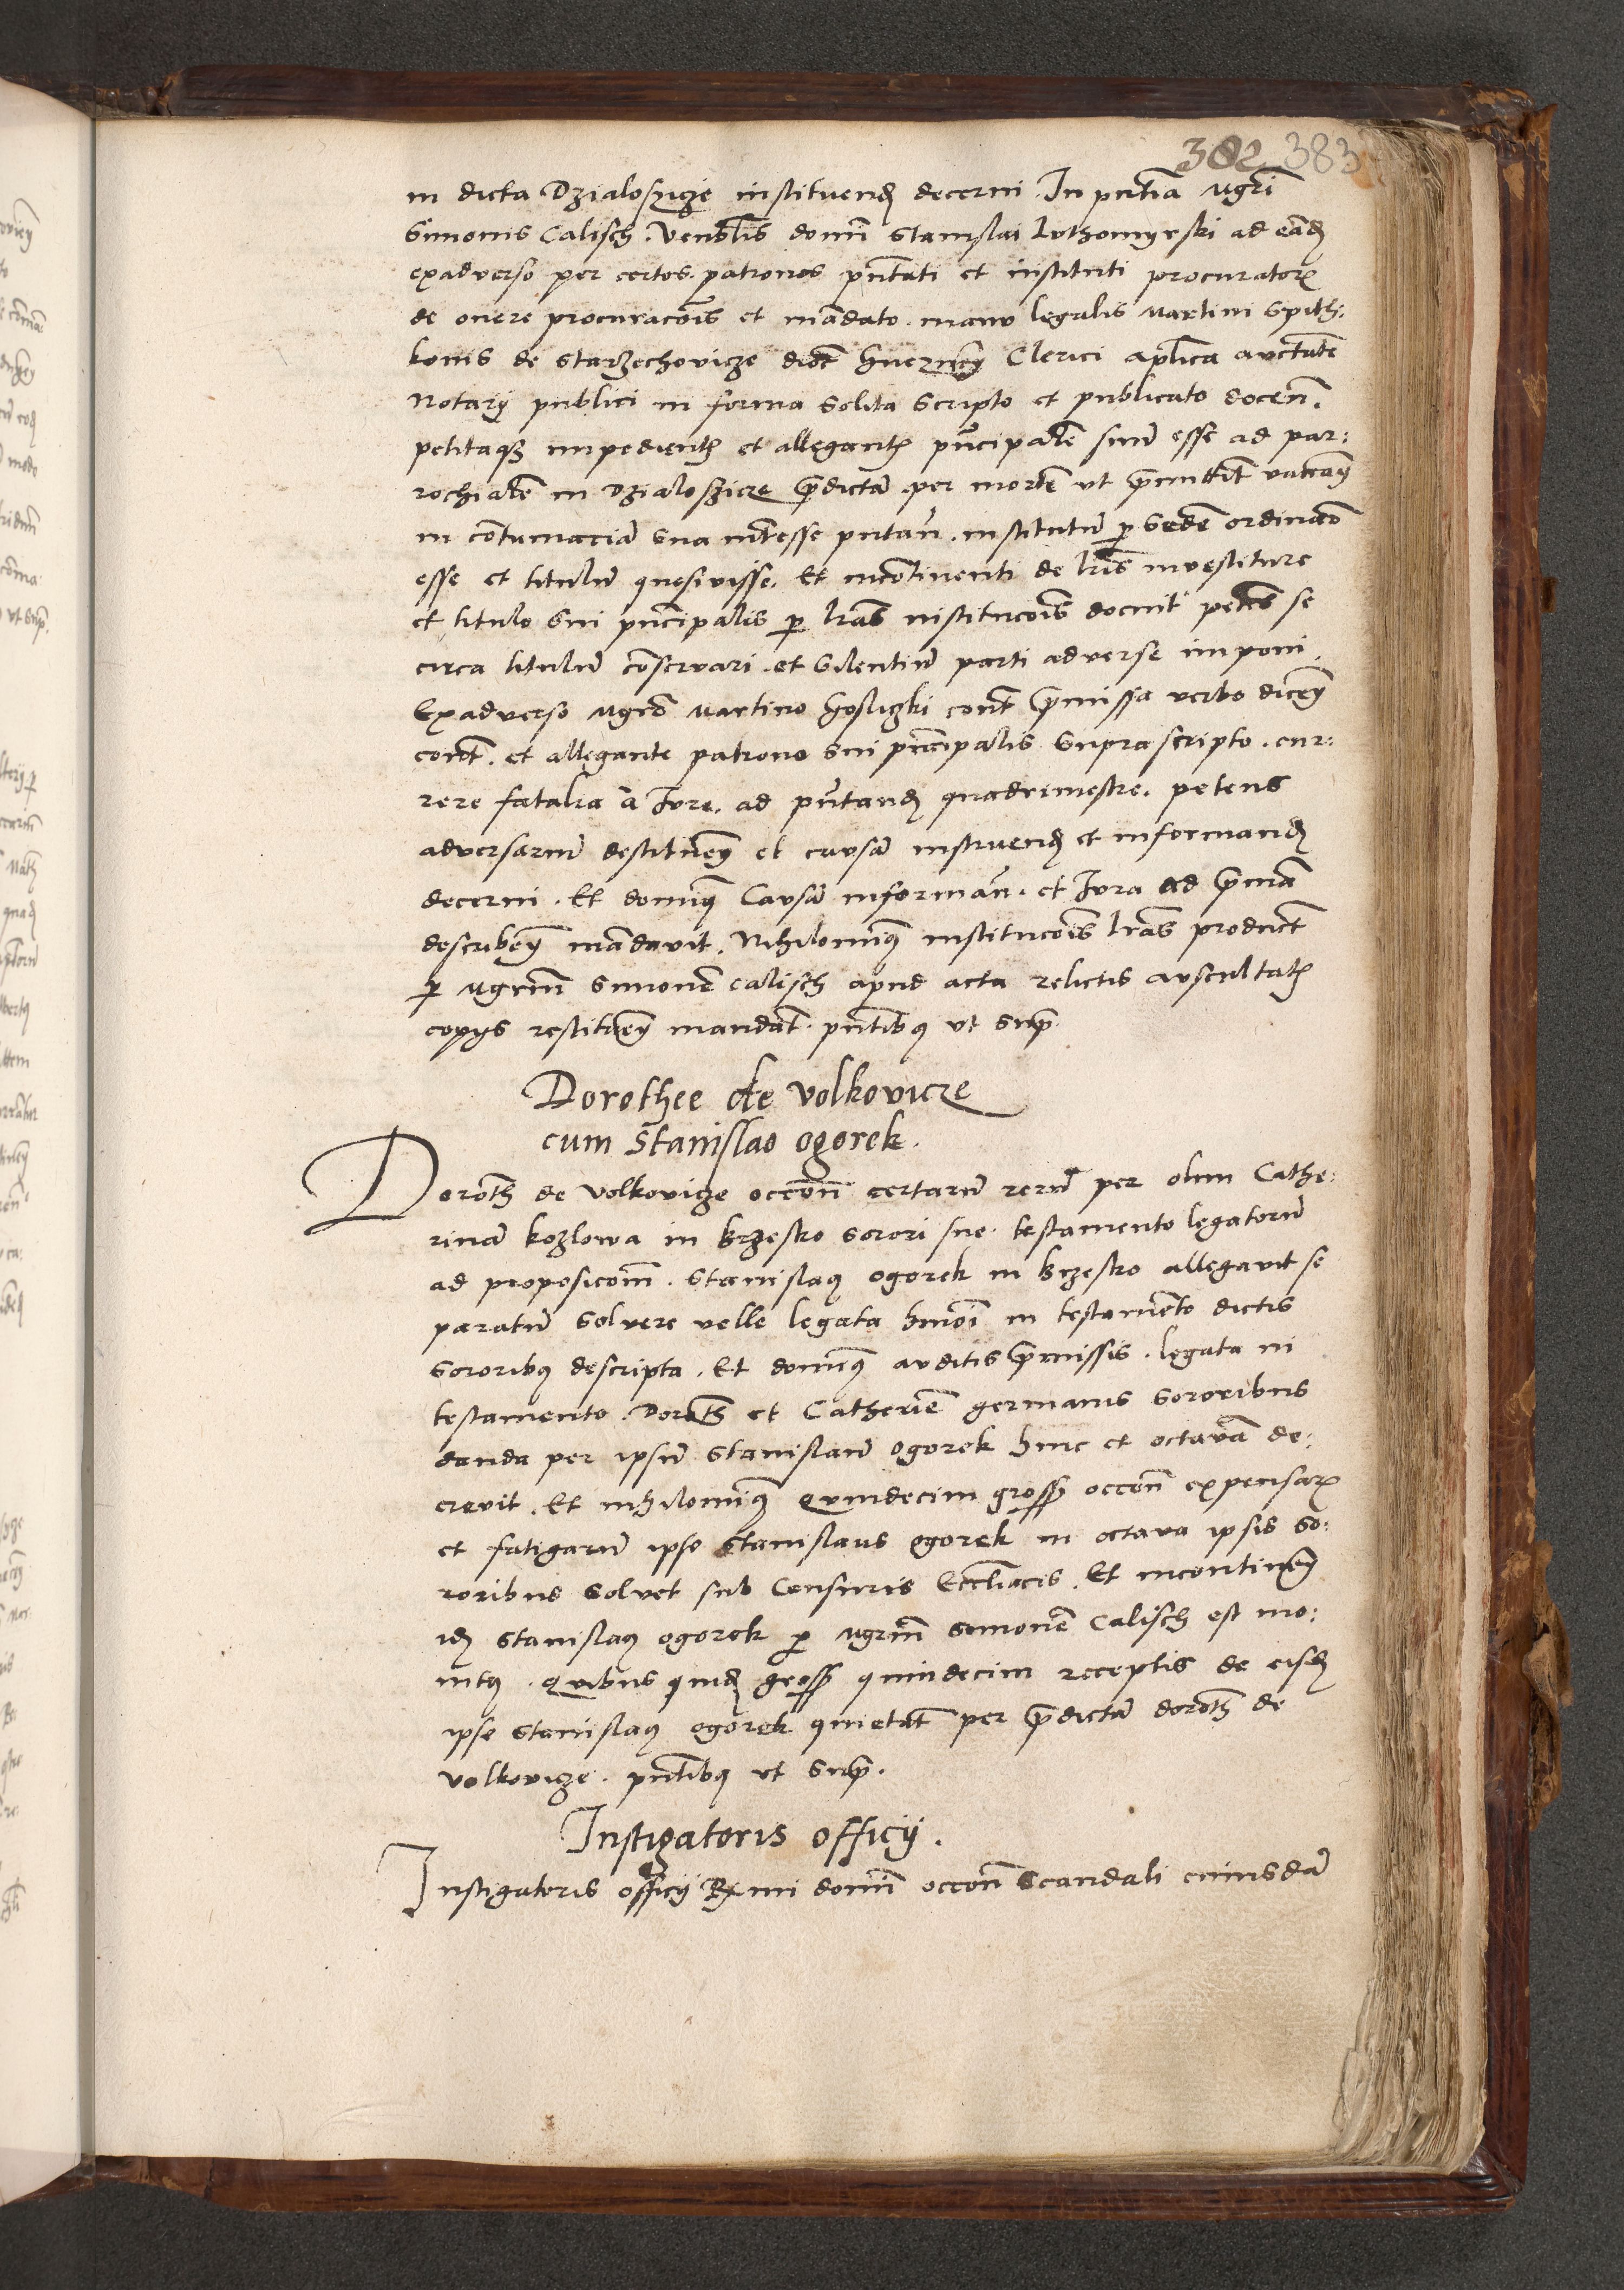 302 383
in dicta Dzialoszicze instituend decerni. In pntia mgri
Simonis Calisch. Venblis domi Stanislai Luthomyrski ad eand
exadverso per certos patronos pntati et instituti procurator
de onere procuracois et mandato. manu legalis Martini Spith:
konis de Starzechovicze dioc Gneznen Clerici aplica auctate
Notarij publici in forma solita scripto et publicato docen.
petitaqz impedient et allegant principale suum esse ad par:
rochiale in Dzialoszicze predicta. per morte ut premittit vacan
in contumacia sua interesse putan. institutu per Sede ordinaria
esse et titulu quesivisse. Et incontinenti de lris investiture
et titulo sui principalis per lras institucois docuit petens se
circa titulu conservari. et silentiu parti adverse imponi.
Exadverso mgro Martino Gosliczki cont premissa verbo dicen
cont. et allegante patrono sui principalis supra scripto. cur:
rere fatalia a Jure. ad pntand quadrimestre. petens
adversariu destituen et causa instruend et informand
decerni. Et dominus Causa informan. et Jura ad prima
describen mandavit. Nihilominus institucois lras product
per mgrum Simone Calisch apud acta relictis auscultat
copijs restituen mandat. pntibus ut supra
Dorothee de Volkovicze
cum Stanislao Ogorek.
Doroth de Volkovicze occone certaru reru per olim Cathe:
rina Kozlowa in Brzesko sorori sue testamento legatoru
ad proposicom. Stanislaus Ogorek in Brzesko allegavit se
paratu solvere velle legata hmoi in testamento dictis
sororibus descripta. Et dominus auditis premissis. legata in
testamento. Doroth et Catherine germanis sororibus
danda per ipsu Stanislau Ogorek hinc et octava de:
crevit. Et nihilominus quindecim gross occone expensar
et fatigaru ipse Stanislaus Ogorek in octava ipsis so:
roribus solvet sub Censuris Eccliacis. Et incontinen
id Stanislaus Ogorek per mgrum Simone Calisch est mo:
nitus. Quibus quid gross quindecim receptis de eisd
ipse Stanislaus Ogorek quietat per predicta Doroth de
Volkovicze. pntibus ut supra.
Instigatoris officij.
Instigatoris officij Rmi domi occone scandali cuiusda